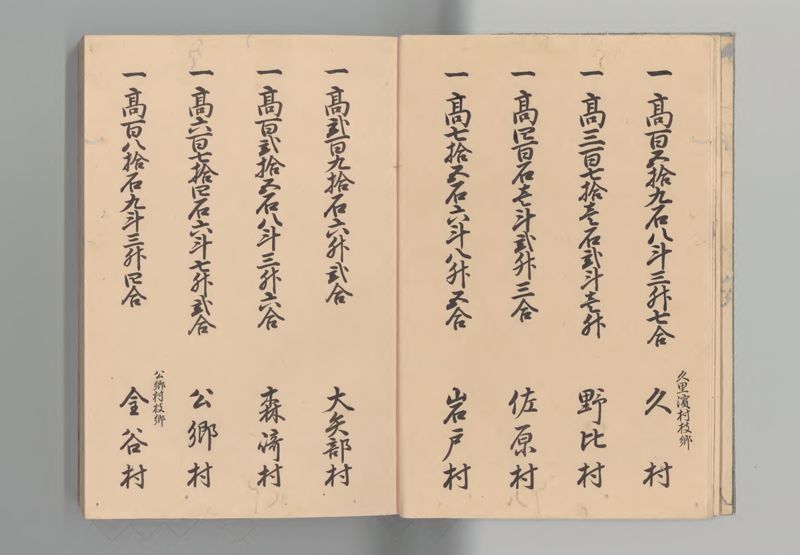 一高百五拾九石八斗三升七合
久里濱村枝郷
久村
一高三百七拾壱石弐斗壱升
野比村
一高四百石壱斗弐升三合
佐原村
一高七拾五石六斗八升五合
岩戸村
一高弐百九拾石六升弐合
大矢部村
一高百弐拾五石八斗三升六合
森崎村
一高六百七拾四石六斗七升弐合
公郷村
一高百八拾石九斗三升四合
公郷村枝郷
金谷村